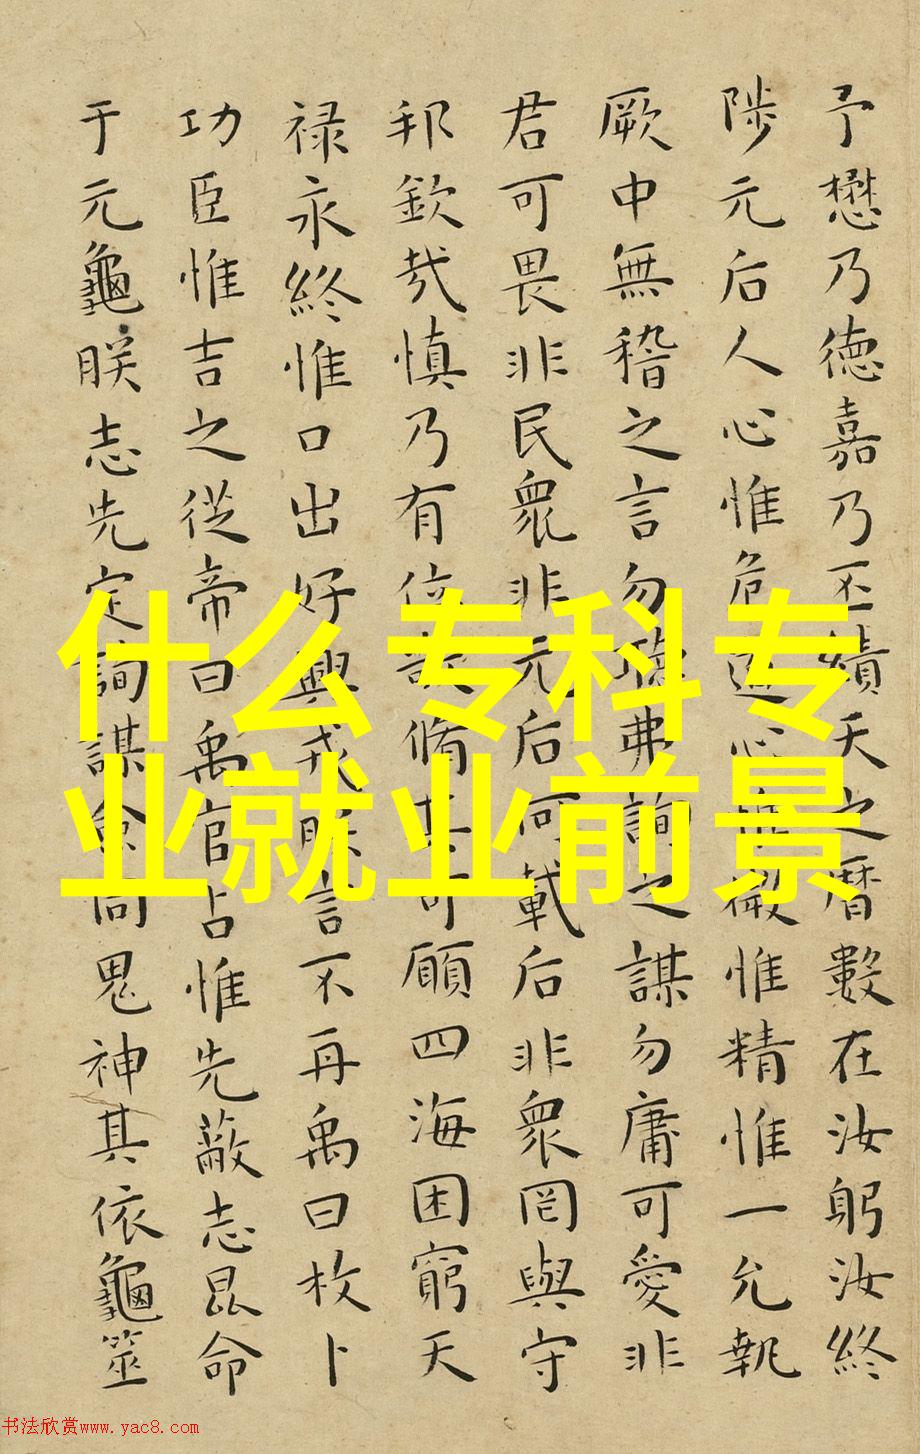 予懋乃德嘉乃丕績天之曆數在汝躬汝終
陟元后人心惟危道心惟微惟精惟一允執
厥中無稽之言勿聽弗詢之謀勿庸可愛非
君可畏非民衆非元后何載后非衆罔與守
邦欽哉慎乃有位敬脩其可願四海困窮天
禄永終惟口出好興戎朕言不再禹曰枚卜
功臣惟吉之從帝曰禹官占惟先蔽志昆命
于元龜朕志先定詢謀僉同鬼神其依龜筮
什么专科专
业就业前景
书法欣赏www.yac8.com